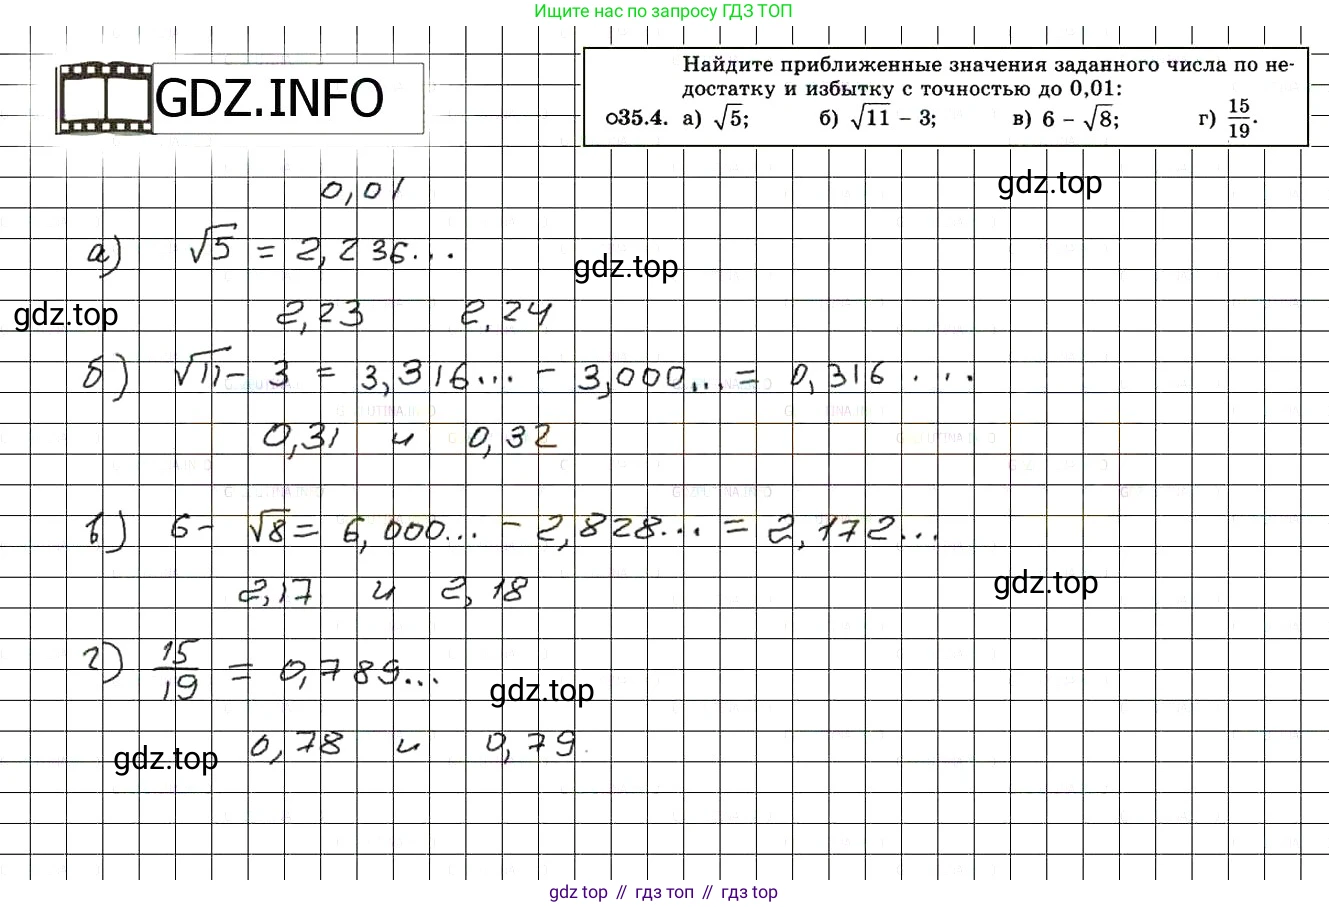 Ищите нас по запросу ГДЗ ТОП
GDZ.INFO
Найдите приближенные значения заданного числа по не-
достатку и избытку с точностью до 0,01:
о35.4. а) √5; б) √11 – 3; в) 6 – √8; г) 15/19.
gdz.top
0,01
а) √5 = 2,236...
gdz.top
gdz.top
2,23 2,24
б) √11 – 3 = 3,316... – 3,000... = 0,316...
0,31 и 0,32
в) 6 – √8 = 6,000... – 2,828... = 2,172...
2,17 и 2,18
gdz.top
г) 15/19 = 0,789...
gdz.top
0,78 и 0,79
gdz.top
gdz top // гдз топ // гдз top